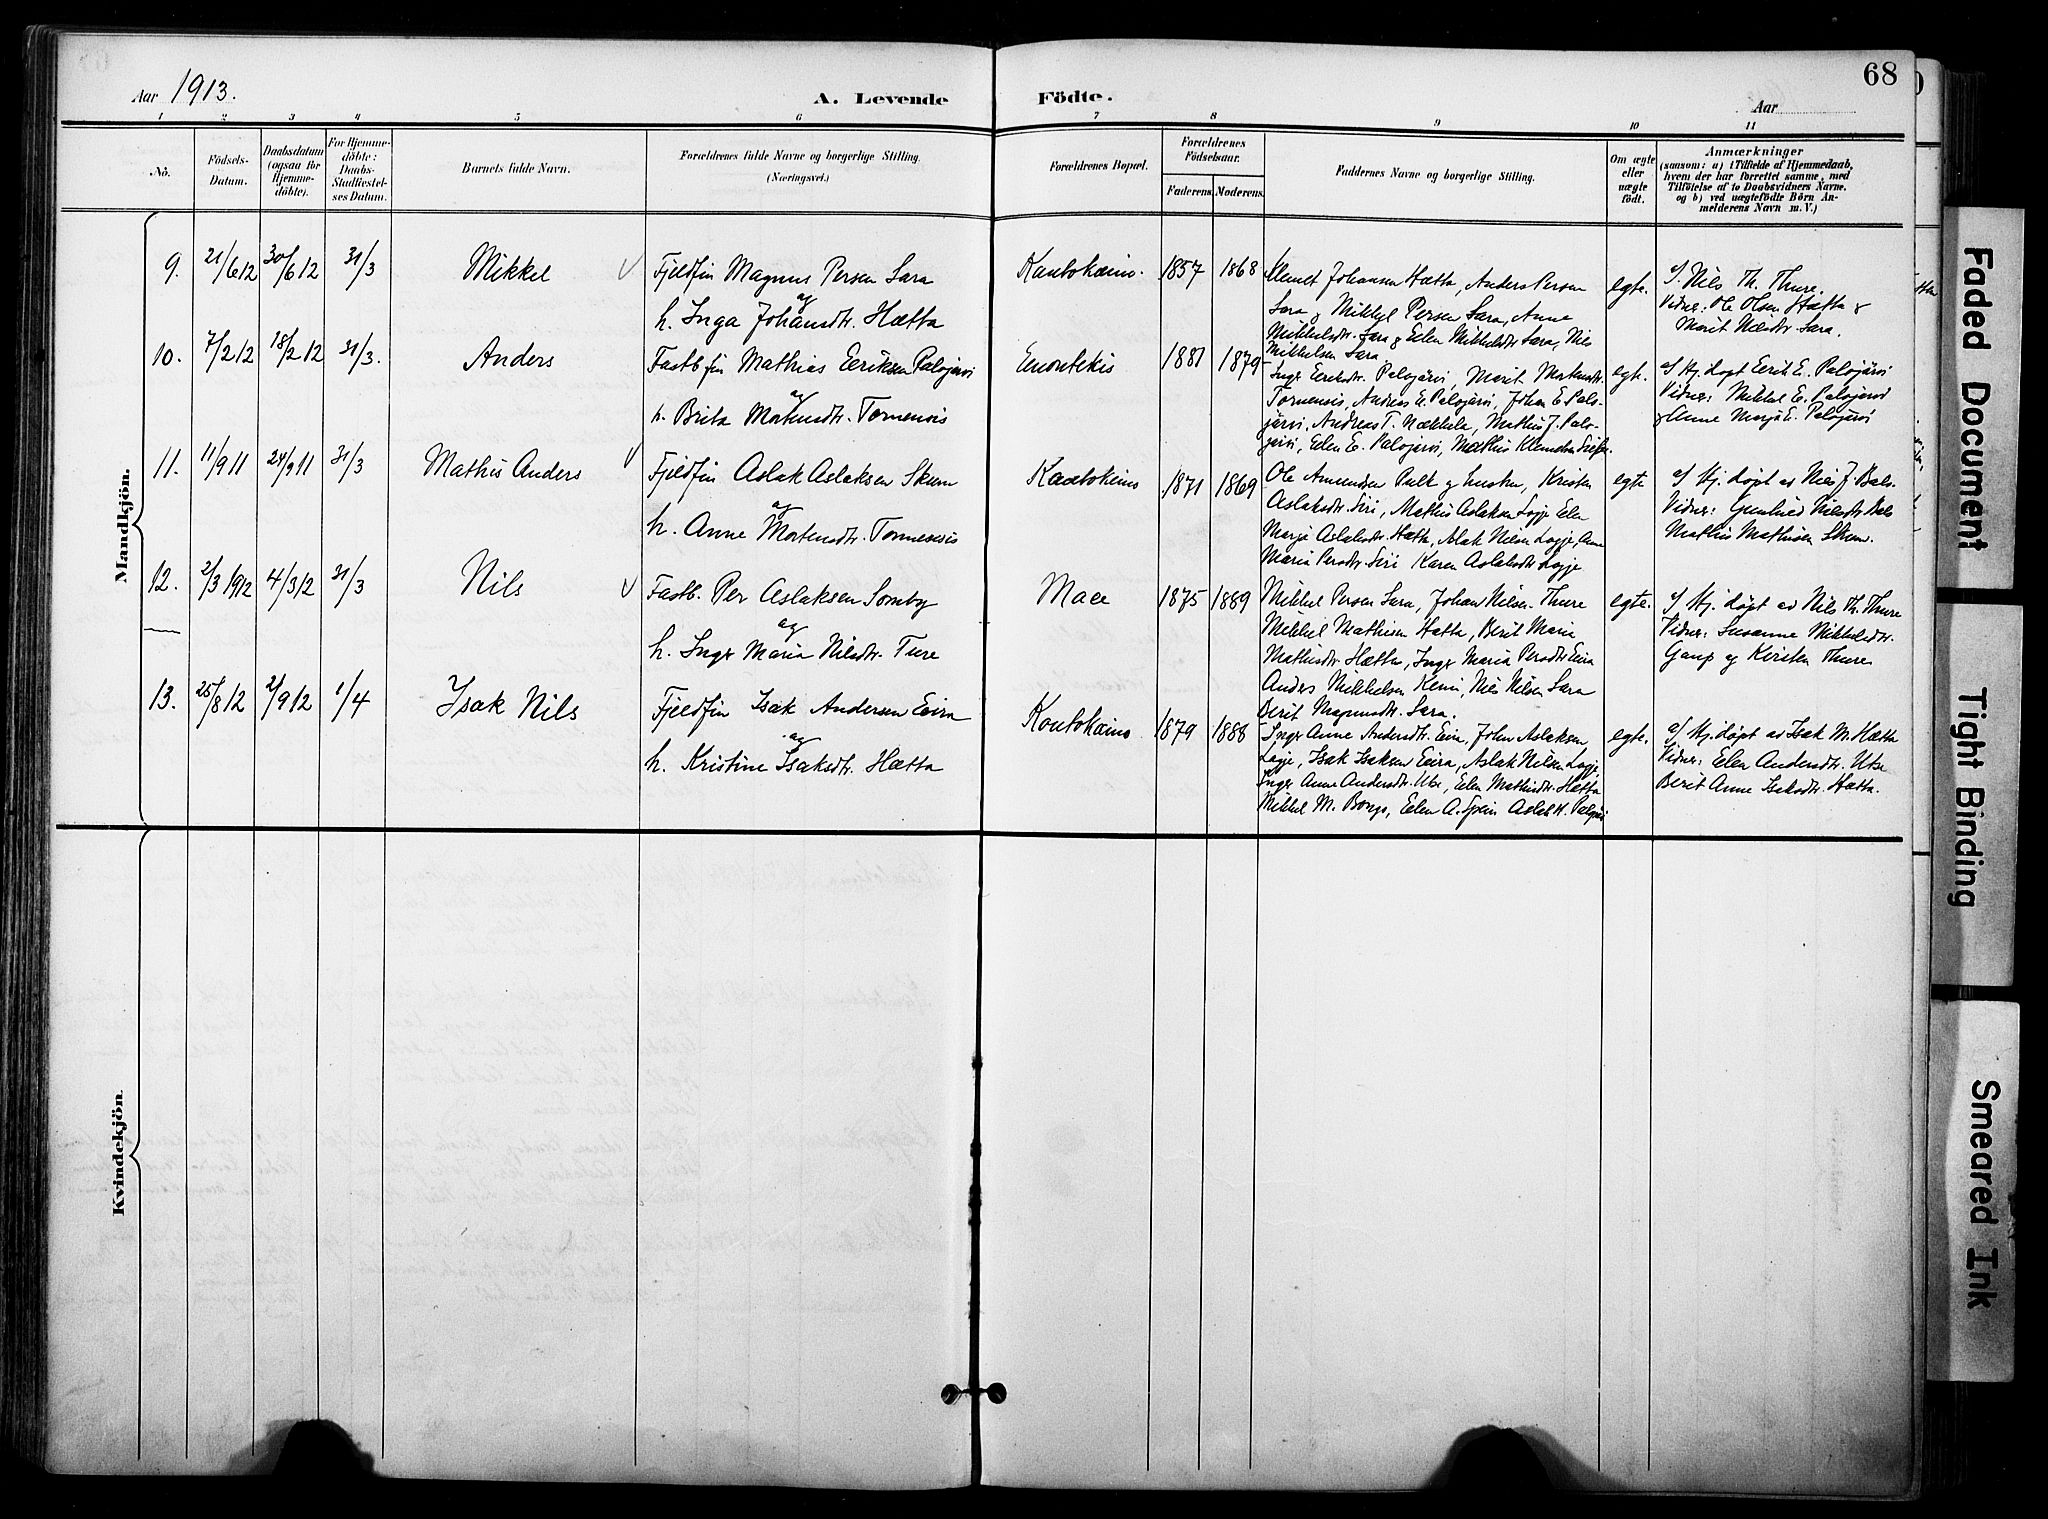 Aar 1913.
A. Levende
Födte.
Aar
68
1 2 3 4 5 6 7 8 9 10 11
No.
Födsels-
Datum.
Daabsdatum
(ogsaa for
Hjemme-
döbte).
For Hjemme-
döbte:
Daabs-
Stadfæstel-
ses Datum.
Barnets fulde Navn.
Forældrenes fulde Navne og borgerlige Stilling.
(Næringsvei.)
Forældrenes Bopæl.
Forældrenes
Födselsaar.
Faderens. Moderens.
Faddernes Navne og borgerlige Stilling.
Om ægte
eller
uægte
født.
Anmærkninger
(saasom: a) i Tilfælde af Hjemmedaab,
hvem der har forrettet samme, med
Tilföielse af to Daabsvidners Navne.
og b) ved uægtefödte Börn An-
melderens Navn m.V.)
Mandkjön.
9. 21/6 12 30/6 12 31/3 Mikkel
Fjeldfin Magnus Persen Sara
og
h. Inga Johansdtr. Hætta
Kautokeino. 1857 1868
Klemet Johansen Hætta, Anders Persen
Sara og Mikkel Persen Sara, Anne
Mikkelsdtr. Sara og Elen Mikkelsdtr Sara, Nils
Mikkelsen Sara
egte.
Nils Th. Thure.
Vidner: Ole Olsen Hætta &
Marit Nilsdtr Sara.
10. 7/2 12 18/2 12 31/3. Anders
Fastb fin Mathias Eriksen Palojärvi
og
h. Brita Mortensdtr. Tornensis
Enontekis 1881 1879
Inger Eriksdtr. Palojärvi, Marit Mortensdtr.
Tornensis, Andreas E. Palojärvi, Johan E. Palo-
järvi, Andreas T. Näkkälä, Mathis J. Palo-
järvi, Elen E. Palojärvi, Mathis Klemetsen
egte.
Hj. døpt Erik E. Palojärvi
Vidner: Mikkel E. Palojärvi
& Anne Marja E. Palojärvi
11. 11/9 11 24/9 11 31/3 Mathis Anders
Fjeldfin Aslak Aslaksen Skum
og
h. Anne Mortensdtr. Tornensis
Kautokeino 1871 1869
Ole Amundsen Pulk og hustru, Kristen
Aslaksdtr. Siri, Mathis Aslaksen Logje Elen
Marja Aslaksdtr. Hætta, Aslak Nilsen Logje, Anne
Maria Persdtr. Siri Karen Aslaksdtr Logje
egte
Hj. døpt av Nils J. Bals.
Vidner: Gunhild Nilsdtr Bals
Mathis Mathisen Skum.
12. 2/3 1912 4/3 12 31/3 Nils
Fastb. Per Aslaksen Somby
og
h. Inger Maria Nilsdtr. Ture
Mace 1875 1889
Mikkel Persen Sara, Johan Nilsen Thure
Mikkel Mathisen Hætta, Berit Maria
Mathisdtr. Hætta, Inger Maria Persdtr. Eira
Anders Mikkelsen Kemi, Nils Nilsen Sara
Berit Magnusdtr. Sara.
egte.
Hj. døpt av Nils Th. Thure
Vidner: Susanne Mikkelsdtr.
Gaup og Kirsten Thure
13. 25/8 12 2/9 12 1/4 Isak Nils
Fjeldfin Isak Andersen Eira
og
h. Kristine Isaksdtr. Hætta
Kautokeino 1879 1888
Inger Anne Andersdtr. Eira, John Aslaksen
Logje, Isak Isaksen Eira, Aslak Nilsen Logje
Inger Anne Andersdtr. Utse, Elen Mathisdtr. Hætta
Mikkel M. Bongo, Elen A. Spein Aslak H.
egte.
Hj. døpt av Isak M. Hætta
Vidner: Elen Andersdtr. Utse
Berit Anne Isaksdtr. Hætta.
Kvindekjön.
Faded Document
Tight Binding
Smeared Ink